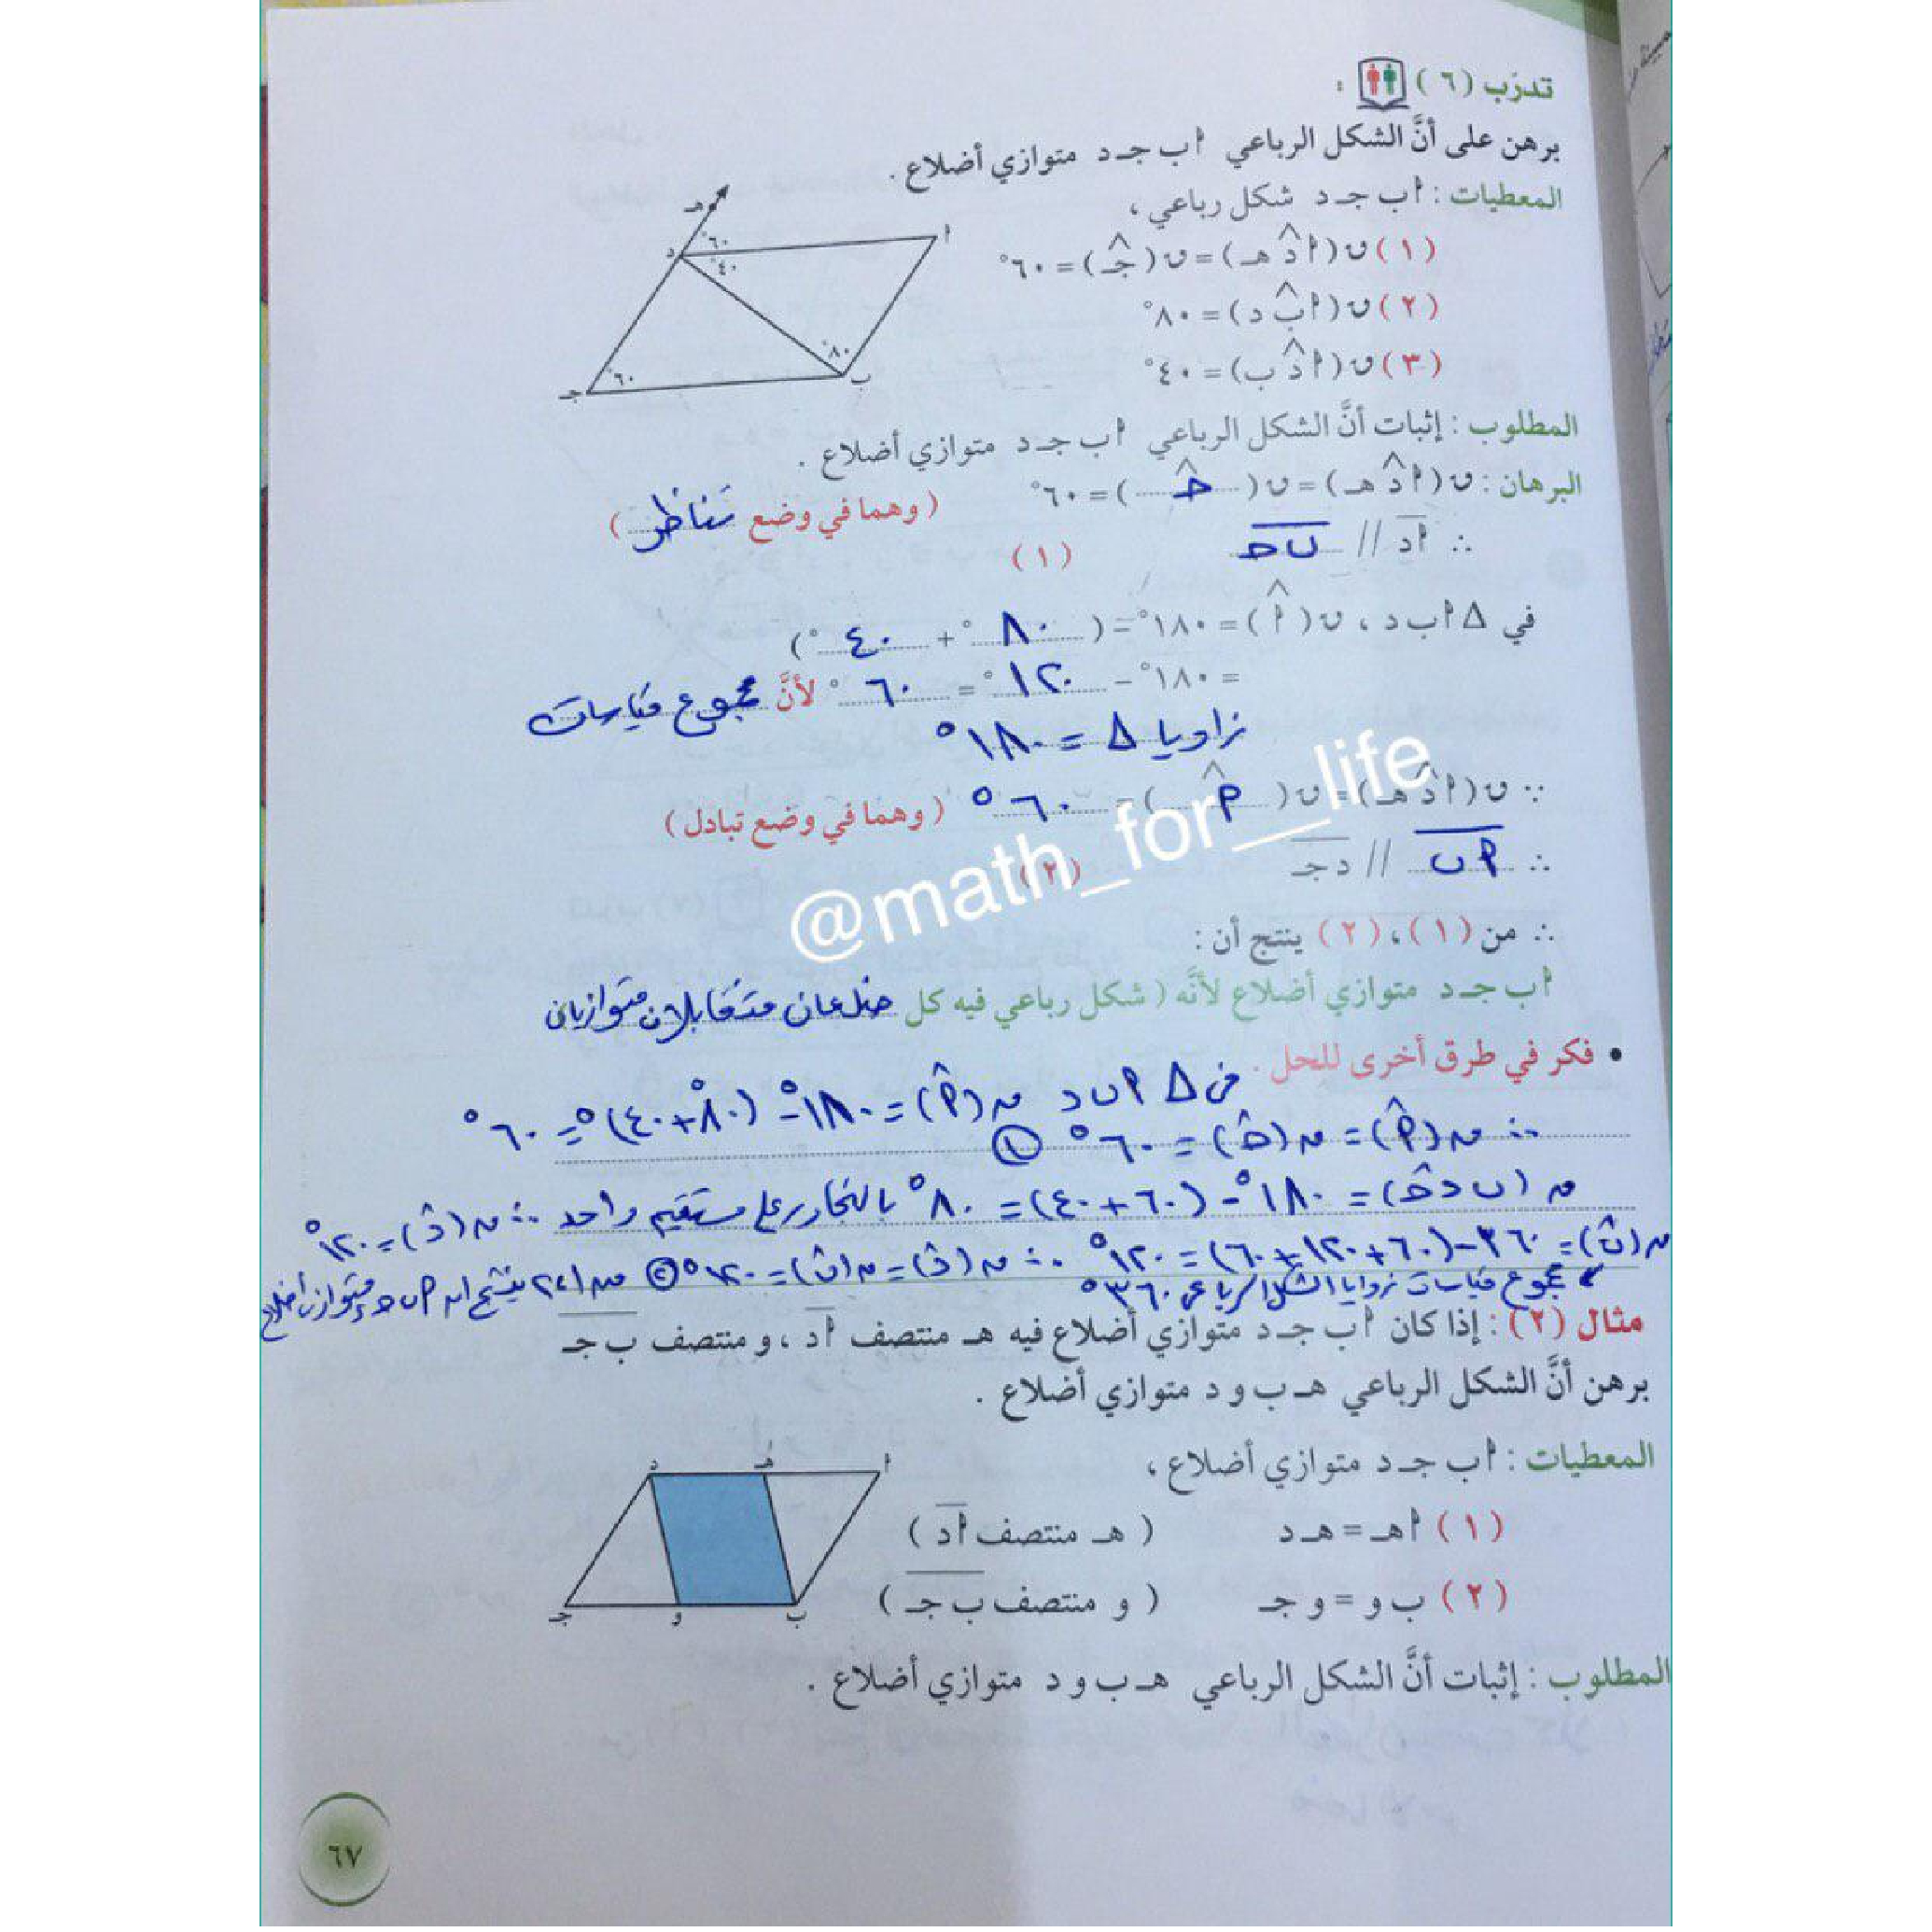 تدرّب (٦) :
برهن على أنَّ الشكل الرباعي أ ب جـ د متوازي أضلاع .
المعطيات : أ ب جـ د شكل رباعي ،
(١) ن(أ د̂ هـ) = ن(جـ̂) = ٦٠°
(٢) ن(أ ب̂ د) = ٨٠°
(٣) ن(أ د̂ ب) = ٤٠°
هـ
د
أ
ب
جـ
٦٠°
٤٠°
٨٠°
٦٠°
المطلوب : إثبات أنَّ الشكل الرباعي أ ب جـ د متوازي أضلاع .
البرهان : ن(أ د̂ هـ) = ن(حـ̂) = ٦٠° (وهما في وضع تناظر)
∴ أد // ب حـ (١)
في Δ أ ب د ، ن(أ̂) = ١٨٠° − (٨٠° + ٤٠°)
= ١٨٠° − ١٢٠° = ٦٠° لأنَّ مجموع قياسات
زاويا Δ = ١٨٠°
∵ ن(أ د̂ هـ) = ن(أ̂) = ٦٠° (وهما في وضع تبادل)
∴ أ ب // د جـ (٢)
∴ من (١) ، (٢) ينتج أن :
أ ب جـ د متوازي أضلاع لأنَّه (شكل رباعي فيه كل ضلعان متقابلان متوازيان
• فكر في طرق أخرى للحل . في Δ أ ب د ن(أ̂) = ١٨٠° − (٨٠° + ٤٠°) = ٦٠°
∴ ن(أ̂) = ن(حـ̂) = ٦٠° ①
ن(ب د̂ حـ) = ١٨٠° − (٦٠ + ٤٠) = ٨٠° بالتجاور على مستقيم واحد ∴ ن(د̂) = ١٢٠°
ن(ب̂) = ٣٦٠ − (٦٠ + ١٢٠ + ٦٠) = ١٢٠° ∴ ن(د̂) = ن(ب̂) = ١٢٠° ② من ١ ، ٢ ينتج أن أ ب حـ د متوازي أضلاع
مجموع قياسات زوايا الشكل الرباعي ٣٦٠°
مثال (٢) : إذا كان أ ب جـ د متوازي أضلاع فيه هـ منتصف أد ، و منتصف ب جـ
برهن أنَّ الشكل الرباعي هـ ب و د متوازي أضلاع .
المعطيات : أ ب جـ د متوازي أضلاع ،
(١) أ هـ = هـ د ( هـ منتصف أد )
(٢) ب و = و جـ ( و منتصف ب جـ )
د
هـ
أ
جـ
و
ب
المطلوب : إثبات أنَّ الشكل الرباعي هـ ب و د متوازي أضلاع .
٦٧
@math_for__life